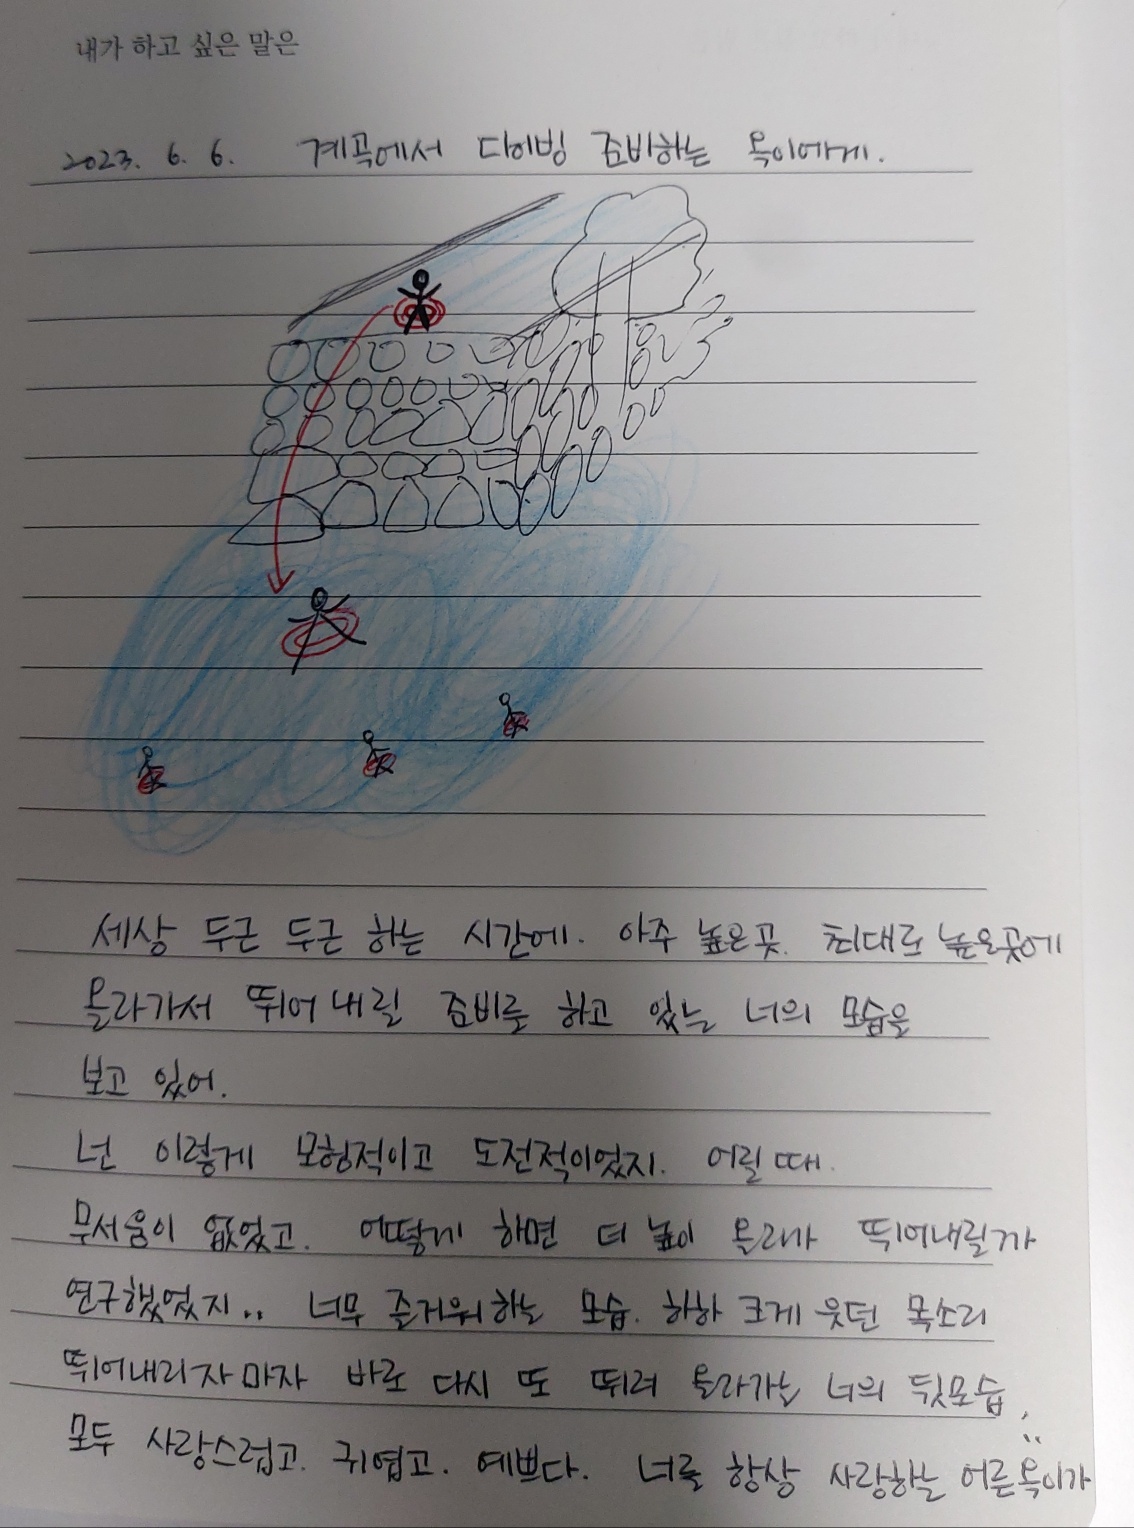 내가 하고 싶은 말은
2023. 6. 6. 계곡에서 다이빙 준비하는 옥이에게.
세상 두근 두근 하는 시간에. 아주 높은 곳. 최대로 높은곳에
올라가서 뛰어 내릴 준비를 하고 있는 너의 모습을
보고 있어.
넌 이렇게 모험적이고 도전적이었지. 어릴 때.
무서움이 없었고. 어떻게 하면 더 높이 올라가 뛰어내릴까
연구했었지.. 너무 즐거워하는 모습. 하하 크게 웃던 목소리
뛰어내리자 마자 바로 다시 또 뛰러 올라가는 너의 뒷모습
모두 사랑스럽고. 귀엽고. 예쁘다. 너를 항상 사랑하는 어른옥이가